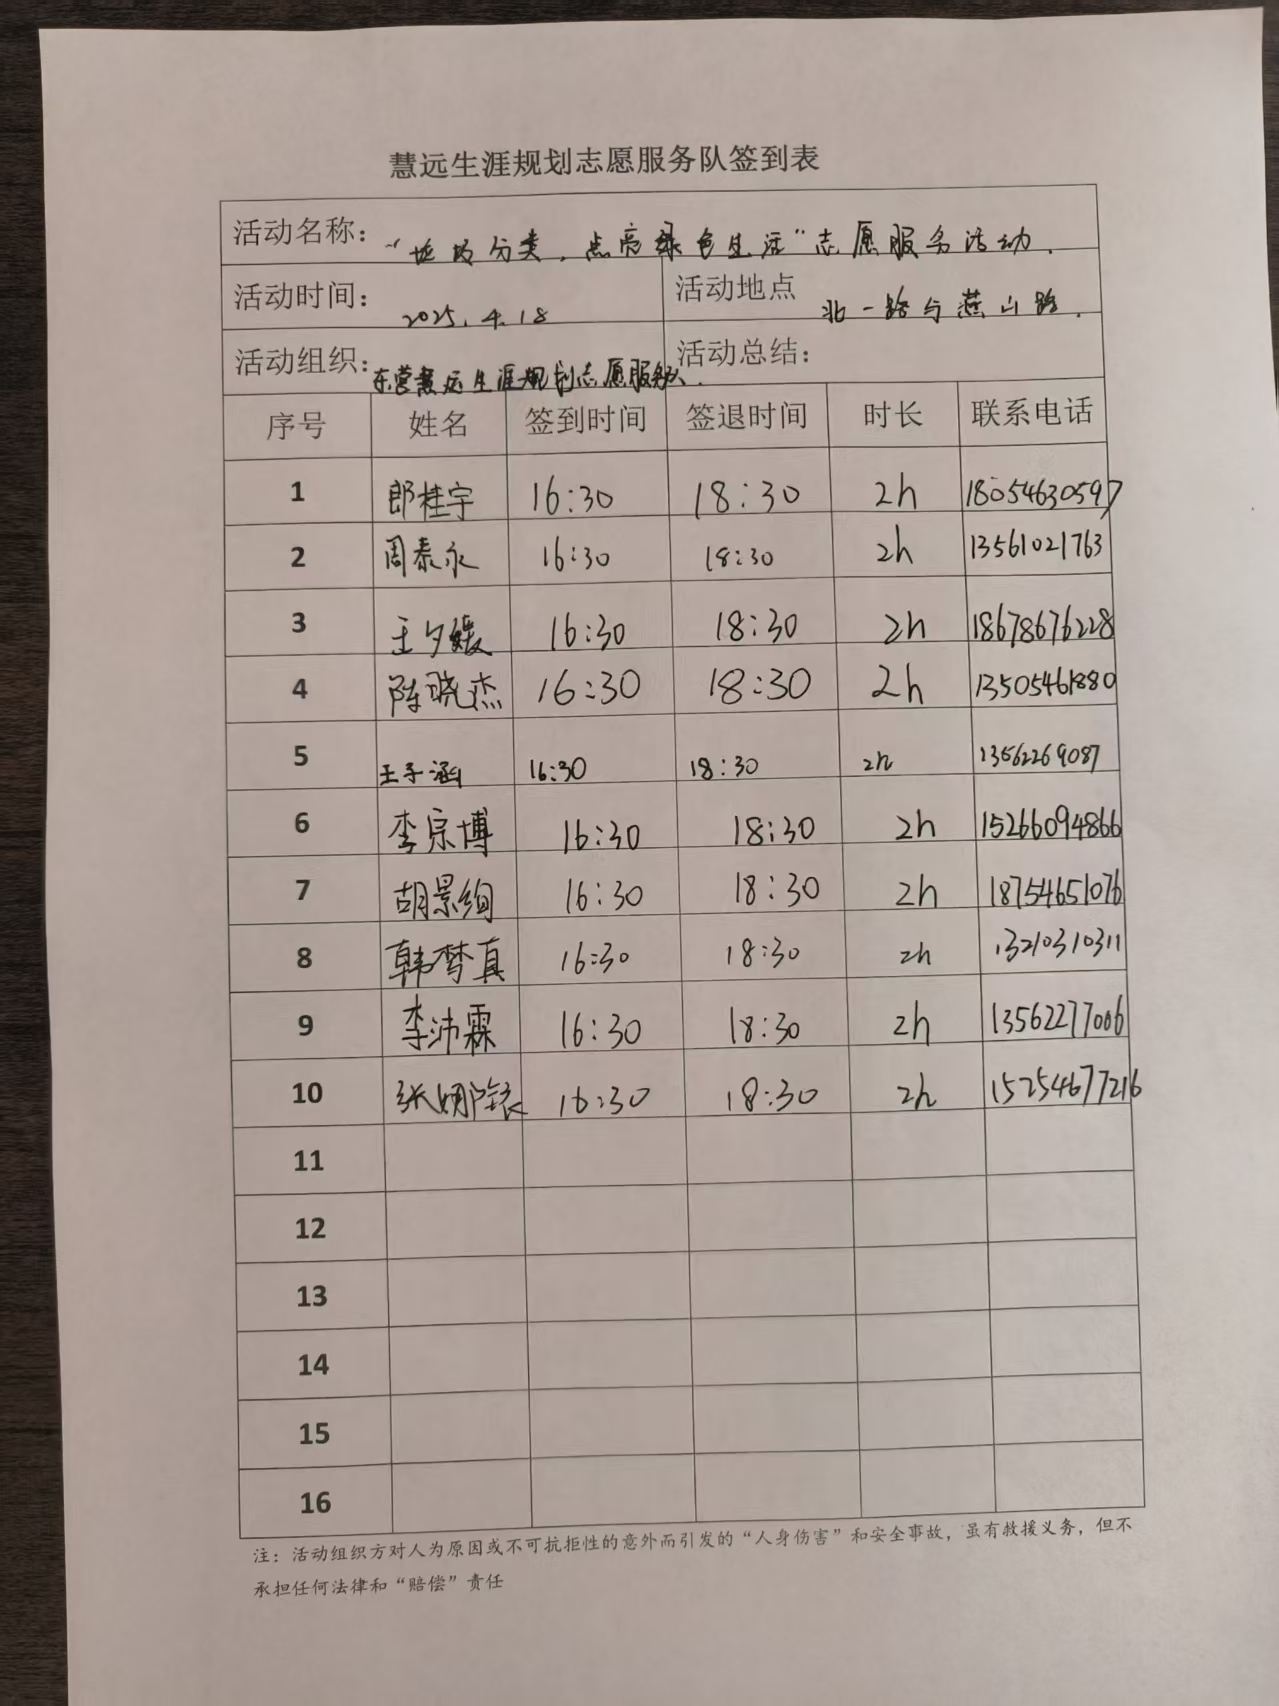 慧远生涯规划志愿服务队签到表
活动名称：“垃圾分类，点亮绿色生活”志愿服务活动.
活动时间：2025.4.18 活动地点 北一路与燕山路.
活动组织：东营慧远生涯规划志愿服务队. 活动总结：
序号 姓名 签到时间 签退时间 时长 联系电话
1 郎桂宇 16:30 18:30 2h 18054630597
2 周泰永 16:30 18:30 2h 13561021763
3 王夕媛 16:30 18:30 2h 18678676228
4 陈晓杰 16:30 18:30 2h 13505461880
5 王子涵 16:30 18:30 2h 13562269087
6 李宗博 16:30 18:30 2h 15266094866
7 胡景绚 16:30 18:30 2h 18754651076
8 韩梦真 16:30 18:30 2h 13210310311
9 李沛霖 16:30 18:30 2h 13562277006
10 16:30 18:30 2h 15254677216
11
12
13
14
15
16
注：活动组织方对人为原因或不可抗拒性的意外而引发的“人身伤害”和安全事故，虽有救援义务，但不
承担任何法律和“赔偿”责任